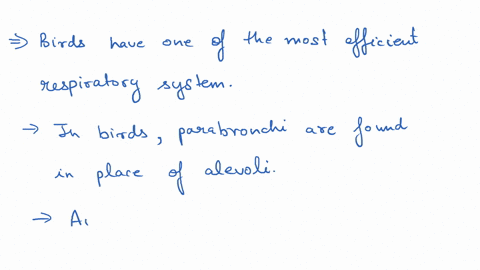 ⇒ Birds have one of the most efficient
respiratory system.
→ In birds, parabronchi are found
in place of alevoli.
→